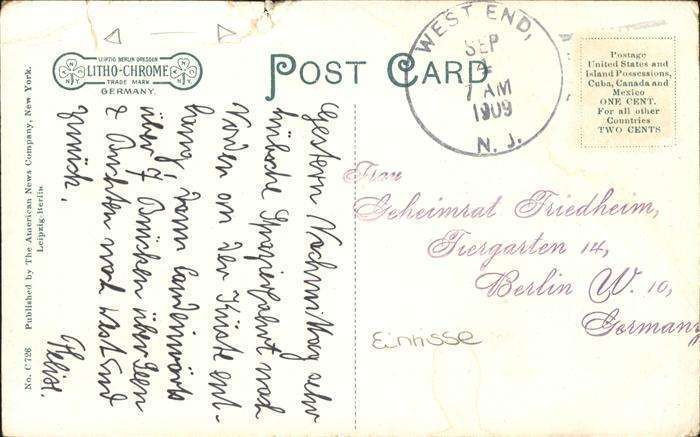 LEIPZIG BERLIN DRESDEN
LITHO-CHROME
TRADE MARK
GERMANY.
POST CARD
WEST END,
SEP
4
7 AM
1909
N. J.
Postage
United States and
Island Possessions,
Cuba, Canada and
Mexico
ONE CENT.
For all other
Countries
TWO CENTS
Gestern Nachmittag sehr
hübsche Spazierfahrt nach
Norden an der Küste ent-
lang, dann landeinwärts
über 7 Brücken über Seen
& Buchten nach West End
zurück.
Felix.
Frau
Geheimrat Friedheim,
Tiergarten 14,
Berlin W. 10,
Germany
Einrisse
No. C 726 Published by The American News Company, New York.
Leipzig-Berlin